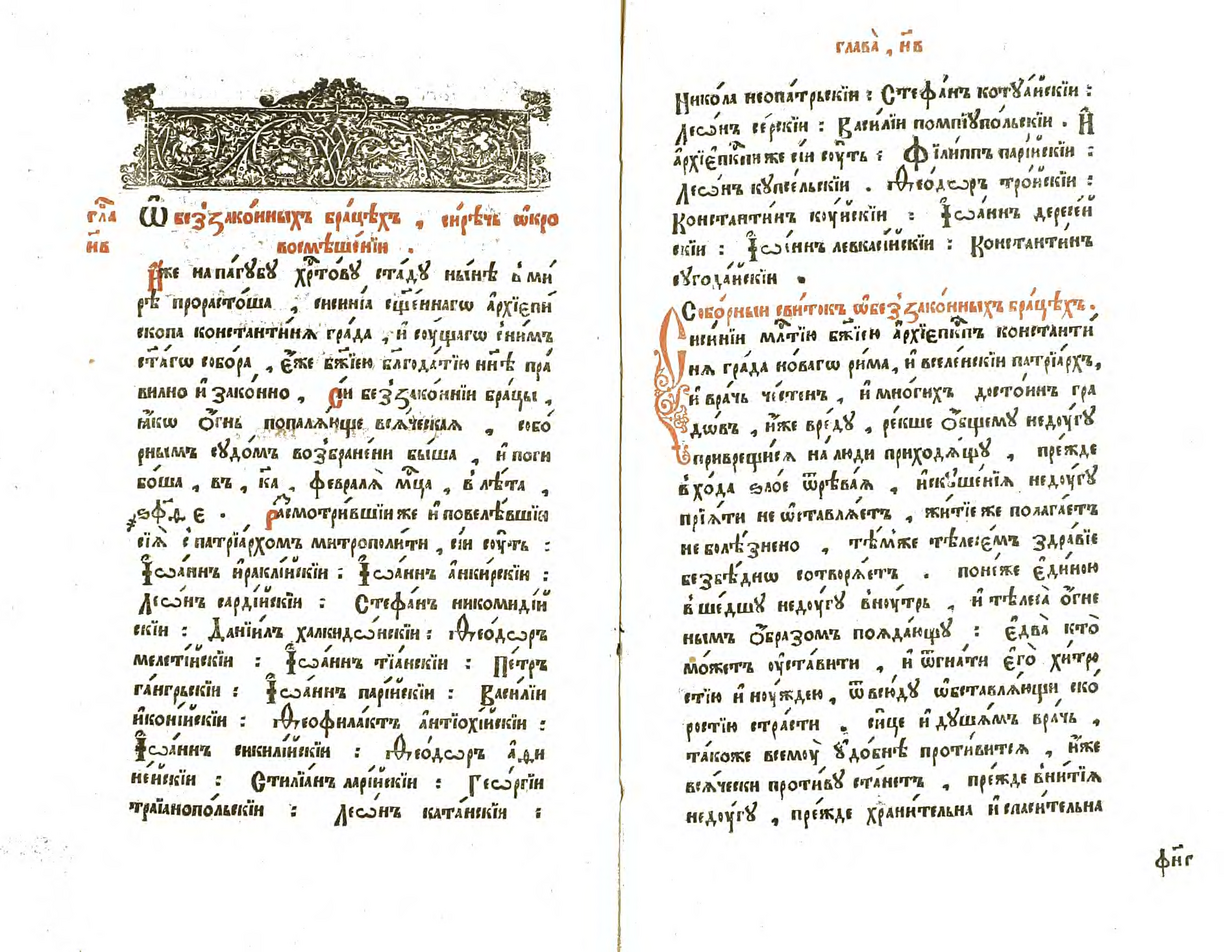 гла҃ Ѡ беззако́нныхъ бра́цѣхъ , си́рѣчь ѡ҆ кро
н҃в восмѣше́нїи .
Я҆́же на па́гꙋбꙋ хрⷭ҇то́вꙋ ста́дꙋ ны́нѣ в ми́
рѣ прорасто́ша , сисинїа сщ҃е́ннагѡ а҆рхїепи
скопа константи́нѧ гра́да , и҆ сꙋ́щагѡ с ни́мъ
ст҃а́гѡ собо́ра , є҆́же бж҃їею бл҃года́тїю нн҃ѣ пра́
вилно и҆ зако́нно , Сі́и беззако́ннїи бра́цы ,
ꙗ҆́кѡ ѻ҆́гнь попалѧ́юще всѧ́ческаѧ , собо́
рнымъ сꙋдо́мъ возбране́ни бы́ша , и҆ поги
бо́ша , въ , к҃а , февралѧ̀ мцⷭ҇а , в лѣ́та ,
҂ѕ҃ф҃ . є҃ . Расмотри́вшїи же и҆ повелѣ́вшїи
сїѧ̀ с патрїа́рхомъ митрополи́ти , сі́и сꙋ́ть :
І҆ѡа́ннъ и҆ракли́искїи : І҆ѡа́ннъ а҆нки́рскїи :
Леѡ́нъ сарді́искїи : Стефа́нъ никомиді́и
скїи : Данїи́лъ халкидѡ́нскїи : Ѳео́дѡръ
мелеті́искїи : І҆ѡа́ннъ тїа́нскїи : Пе́тръ
га́нгрьскїи : І҆ѡа́ннъ парі́искїи : Васи́лїи
и҆коні́искїи : Ѳеофила́ктъ а҆нтїохі́искїи :
І҆ѡа́ннъ сикилі́искїи : Ѳео́дѡръ а҆ѳи
не́искїи : Стилїа́нъ ларі́искїи : Геѡ́ргїи
траїанопо́льскїи : Леѡ́нъ ката́нскїи :
глава̀ , н҃в
Нико́ла неопа́трьскїи : Стефа́нъ котꙋа́искїи :
Леѡ́нъ се́рскїи : Васи́лїи помпїꙋпо́льскїи . И҆
а҆рхїепⷭ҇кпи же сі́и сꙋ́ть : Фїли́ппъ парі́искїи :
Леѡ́нъ кꙋпсе́льскїи . Ѳео́дѡръ тро́искїи :
Константи́нъ коу́искїи : І҆ѡа́ннъ дересе́й
скїи : І҆ѡа́ннъ левкасі́искїи : Константи́нъ
еуго́даискїи .
Собо́рныи сви́токъ ѡ҆ беззако́нныхъ бра́цѣхъ .
Сиси́нїи млⷭ҇тїю бж҃їею а҆рхїепⷭ҇кпъ константи́
нѧ гра́да но́вагѡ ри́ма , и҆ вселе́нскїи патрїа́рхъ ,
и҆ вра́чь че́стенъ , и҆ мно́гихъ досто́инъ гра
дѡ́въ , и҆́же вре́дꙋ , ре́кше ѻ҆́бщемꙋ недоу́гꙋ
привре́щисѧ на лю́ди приходѧ́щꙋ , пре́жде
вхо́да ѕло́е ѿрѣва́ѧ , и҆скꙋше́нїѧ недоу́гꙋ
прїѧ́ти не ѡ҆ставлѧ́етъ , житїе́ же полага́етъ
не болѣ́знено , тѣ́мже тѣлесе́мъ здра́вїе
безбѣ́днѡ сотворѧ́етъ . поне́же є҆ди́ною
вше́дшꙋ недоу́гꙋ вноу́трь , и҆ тѣлеса̀ ѻ҆́гне
нымъ ѻ҆́бразомъ поѧда́ющꙋ : є҆два̀ кто̀
мо́жетъ оу҆ста́вити , и҆ ѿгна́ти є҆го̀ хи́тро
стїю и҆ ноу́ждею , ѿвсю́дꙋ ѡ҆бставлѧ́ющи ско́
ростїю стра́сти . си́це и҆ дꙋша́мъ вра́чь ,
та́коже всемоу̀ ᲂу҆до́бнѣ проти́витсѧ , и҆́же
всѧ́чески проти́вꙋ ста́нетъ , пре́жде вни́тїѧ
недоу́гꙋ , пре́жде храни́тельна и҆ спаси́тельна
фн҃г